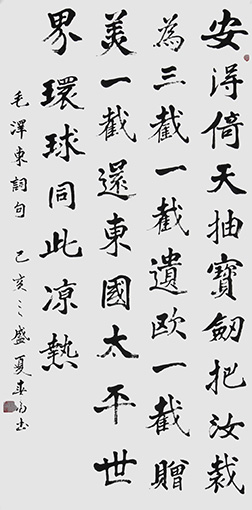 安得倚天抽寶劍把汝裁
為三截一截遺欧一截贈
美一截還東國太平世
界環球同此凉熱
毛澤東詞句 己亥之盛夏春书